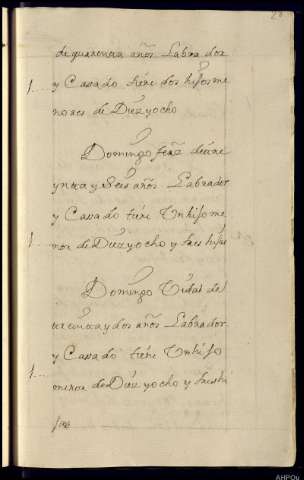 de quarenta años Labrador
1.... y Casado tiene dos hijos me
nores de Diez yocho
Domingo ferz de tre
ynta y Seis años Labrador
y Casado tiene Un hijo me
1.... nor de Diez yocho y tres hijas
Domingo Vidal de
treinta y dos años Labrador
y Casado tiene Un hijo
1.... menor de Diez yocho y tres hi
jas
AHPOu